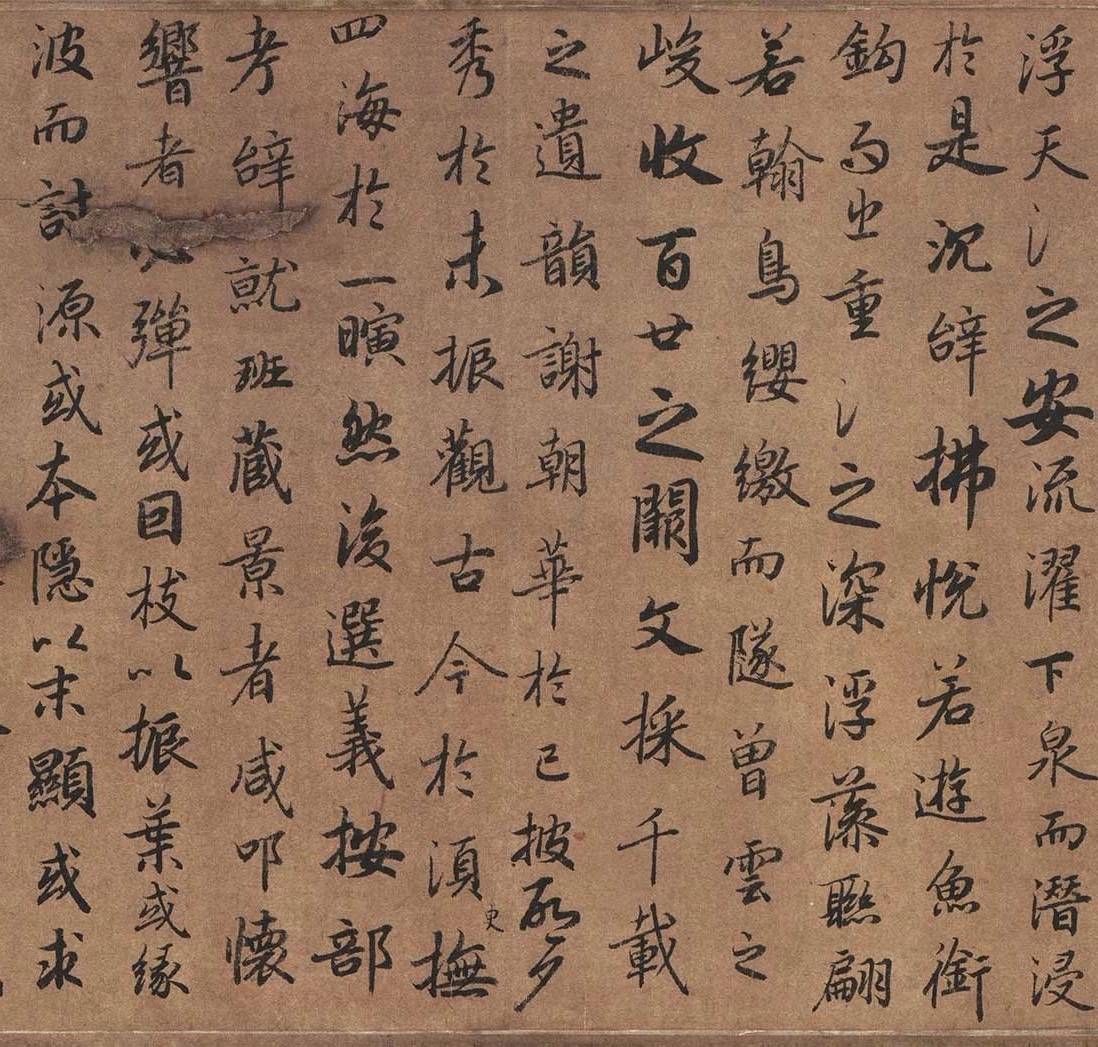 浮天氵之安流濯下泉而潛浸
於是沉辞拂悅若遊魚銜
鈎而出重氵之深浮藻聯翩
若翰鳥纓繳而隧曾雲之
峻收百廿之闕文採千載
之遺韻謝朝華於已披啓夕
秀於未振觀古今於須臾撫
四海於一瞚然後選義按部
考辞就班藏景者咸叩懷
響者必彈或因枝以振葉或緣
波而討源或本隱以末顯或求